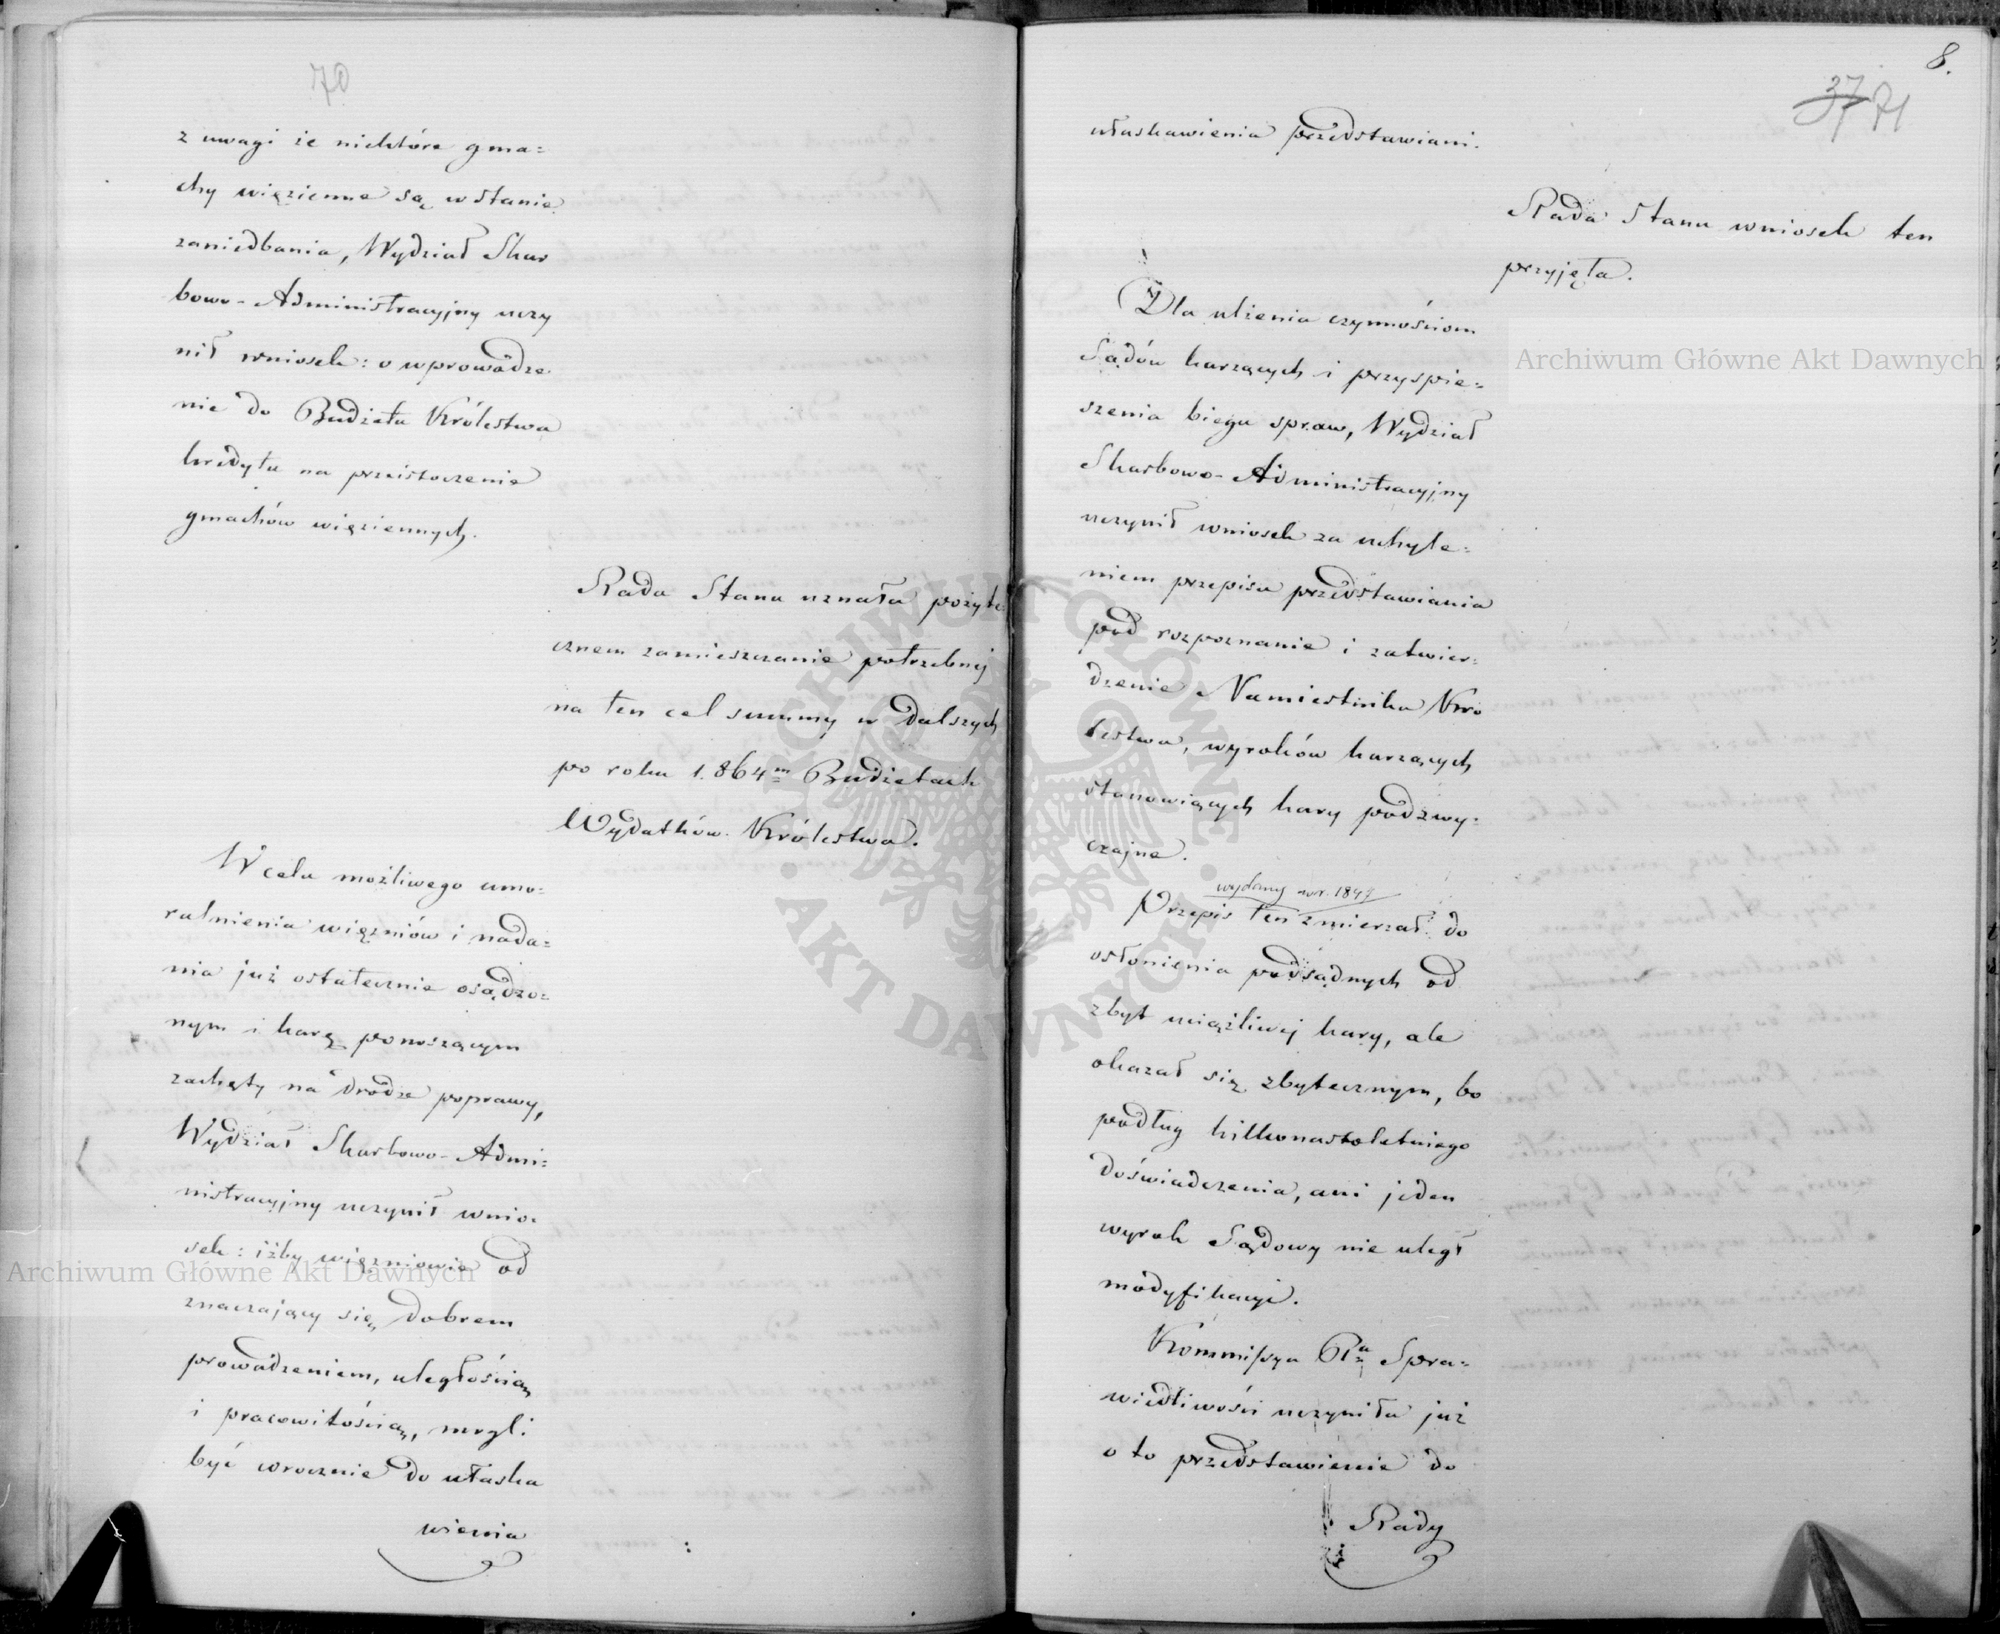 70
z uwagi że niektóre gma=
chy więzienne są w stanie
zaniedbania, Wydział Skar
bowo-Administracyjny uczy
nił wniosek: o wprowadze
nie do Budżetu Królestwa
kredytu na przeistoczenie
gmachów więziennych.
Rada Stanu uznała pożyte
cznem zamieszczanie potrzebnej
na ten cel summy w dalszych
po roku 1.864m Budżetach
Wydatków Królestwa.
W celu możliwego umo=
ralnienia więźniów i nada=
nia już ostatecznie osądzo=
nym i karę ponoszącym
zachęty na drodze poprawy,
Wydział Skarbowo-Admi=
nistracyjny uczynił wnio=
sek: iżby więźniowie od
znaczający się dobrem
prowadzeniem, uległością
i pracowitością, mogli
być corocznie do ułaska
wienia
8.
37 71
ułaskawienia przedstawiani.
Rada Stanu wniosek ten
przyjęła.
Dla ulżenia czynnościom
Sądów karzących i przyspie=
szenia biegu spraw, Wydział
Skarbowo-Administracyjny
uczynił wniosek za uchyle=
niem przepisu przedstawiania
pod rozpoznanie i zatwier=
dzenie Namiestnika Kró
lestwa, wyroków karzących
stanowiących kary nadzwy=
czajne.
wydany w r. 1849
Przepis ten zmierzał do
osłonienia podsądnych od
zbyt uciążliwej kary, ale
okazał się zbytecznym, bo
podług kilkonastoletniego
doświadczenia, ani jeden
wyrok Sądowy nie uległ
modyfikacyi.
Kommissya Rz Spra=
wiedliwości uczyniła już
o to przedstawienie do
Rady
Archiwum Główne Akt Dawnych
Archiwum Główne Akt Dawnych
ARCHIWUM GŁÓWNE · AKT DAWNYCH ·